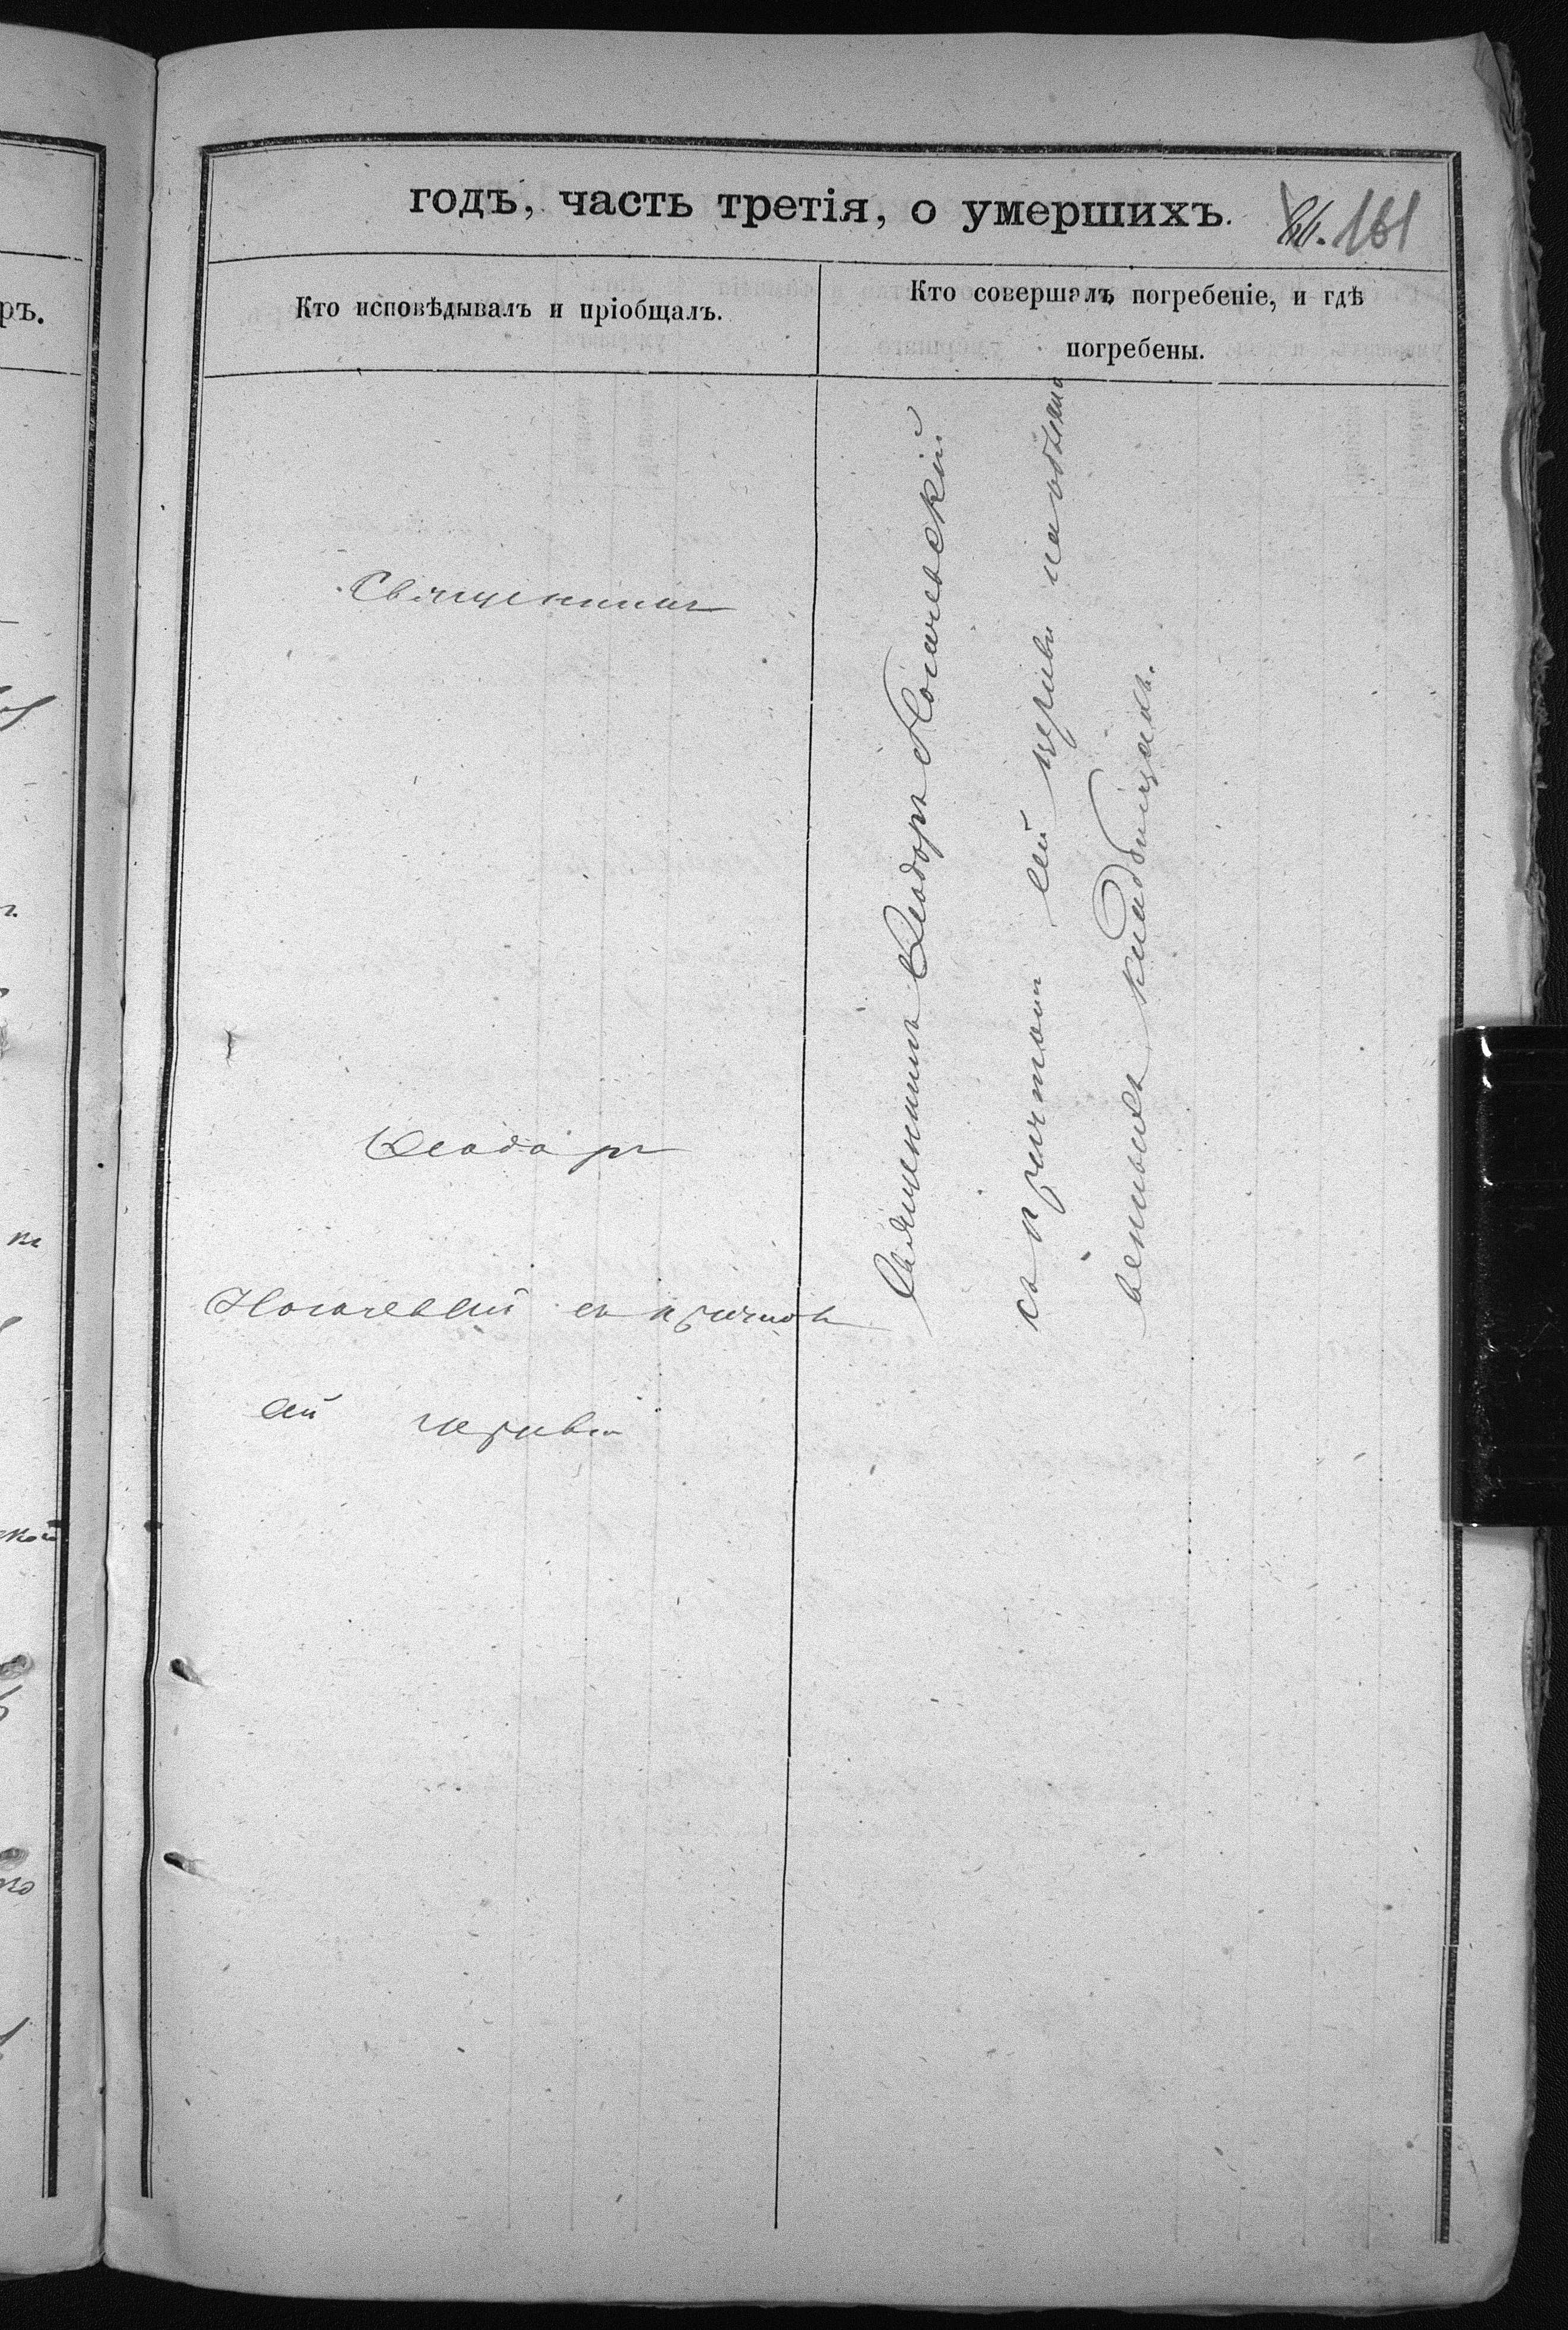 годъ, часть третія, о умершихъ. 161
Кто исповѣдывалъ и пріобщалъ.
Кто совершалъ погребеніе, и гдѣ
погребены.
Священникъ
Ѳеодоръ
Ногачевскій съ причтомъ
сей церкви
Священникъ Ѳеодоръ Ногачевскій
съ причтомъ сей церкви на
кладбищахъ.
ръ.